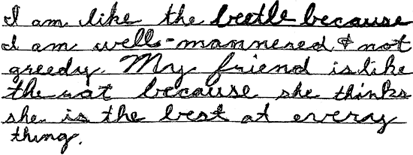 I am like the beetle because
I am well-mannered & not
greedy. My friend is like
the rat because she thinks
she is the best at every
thing.